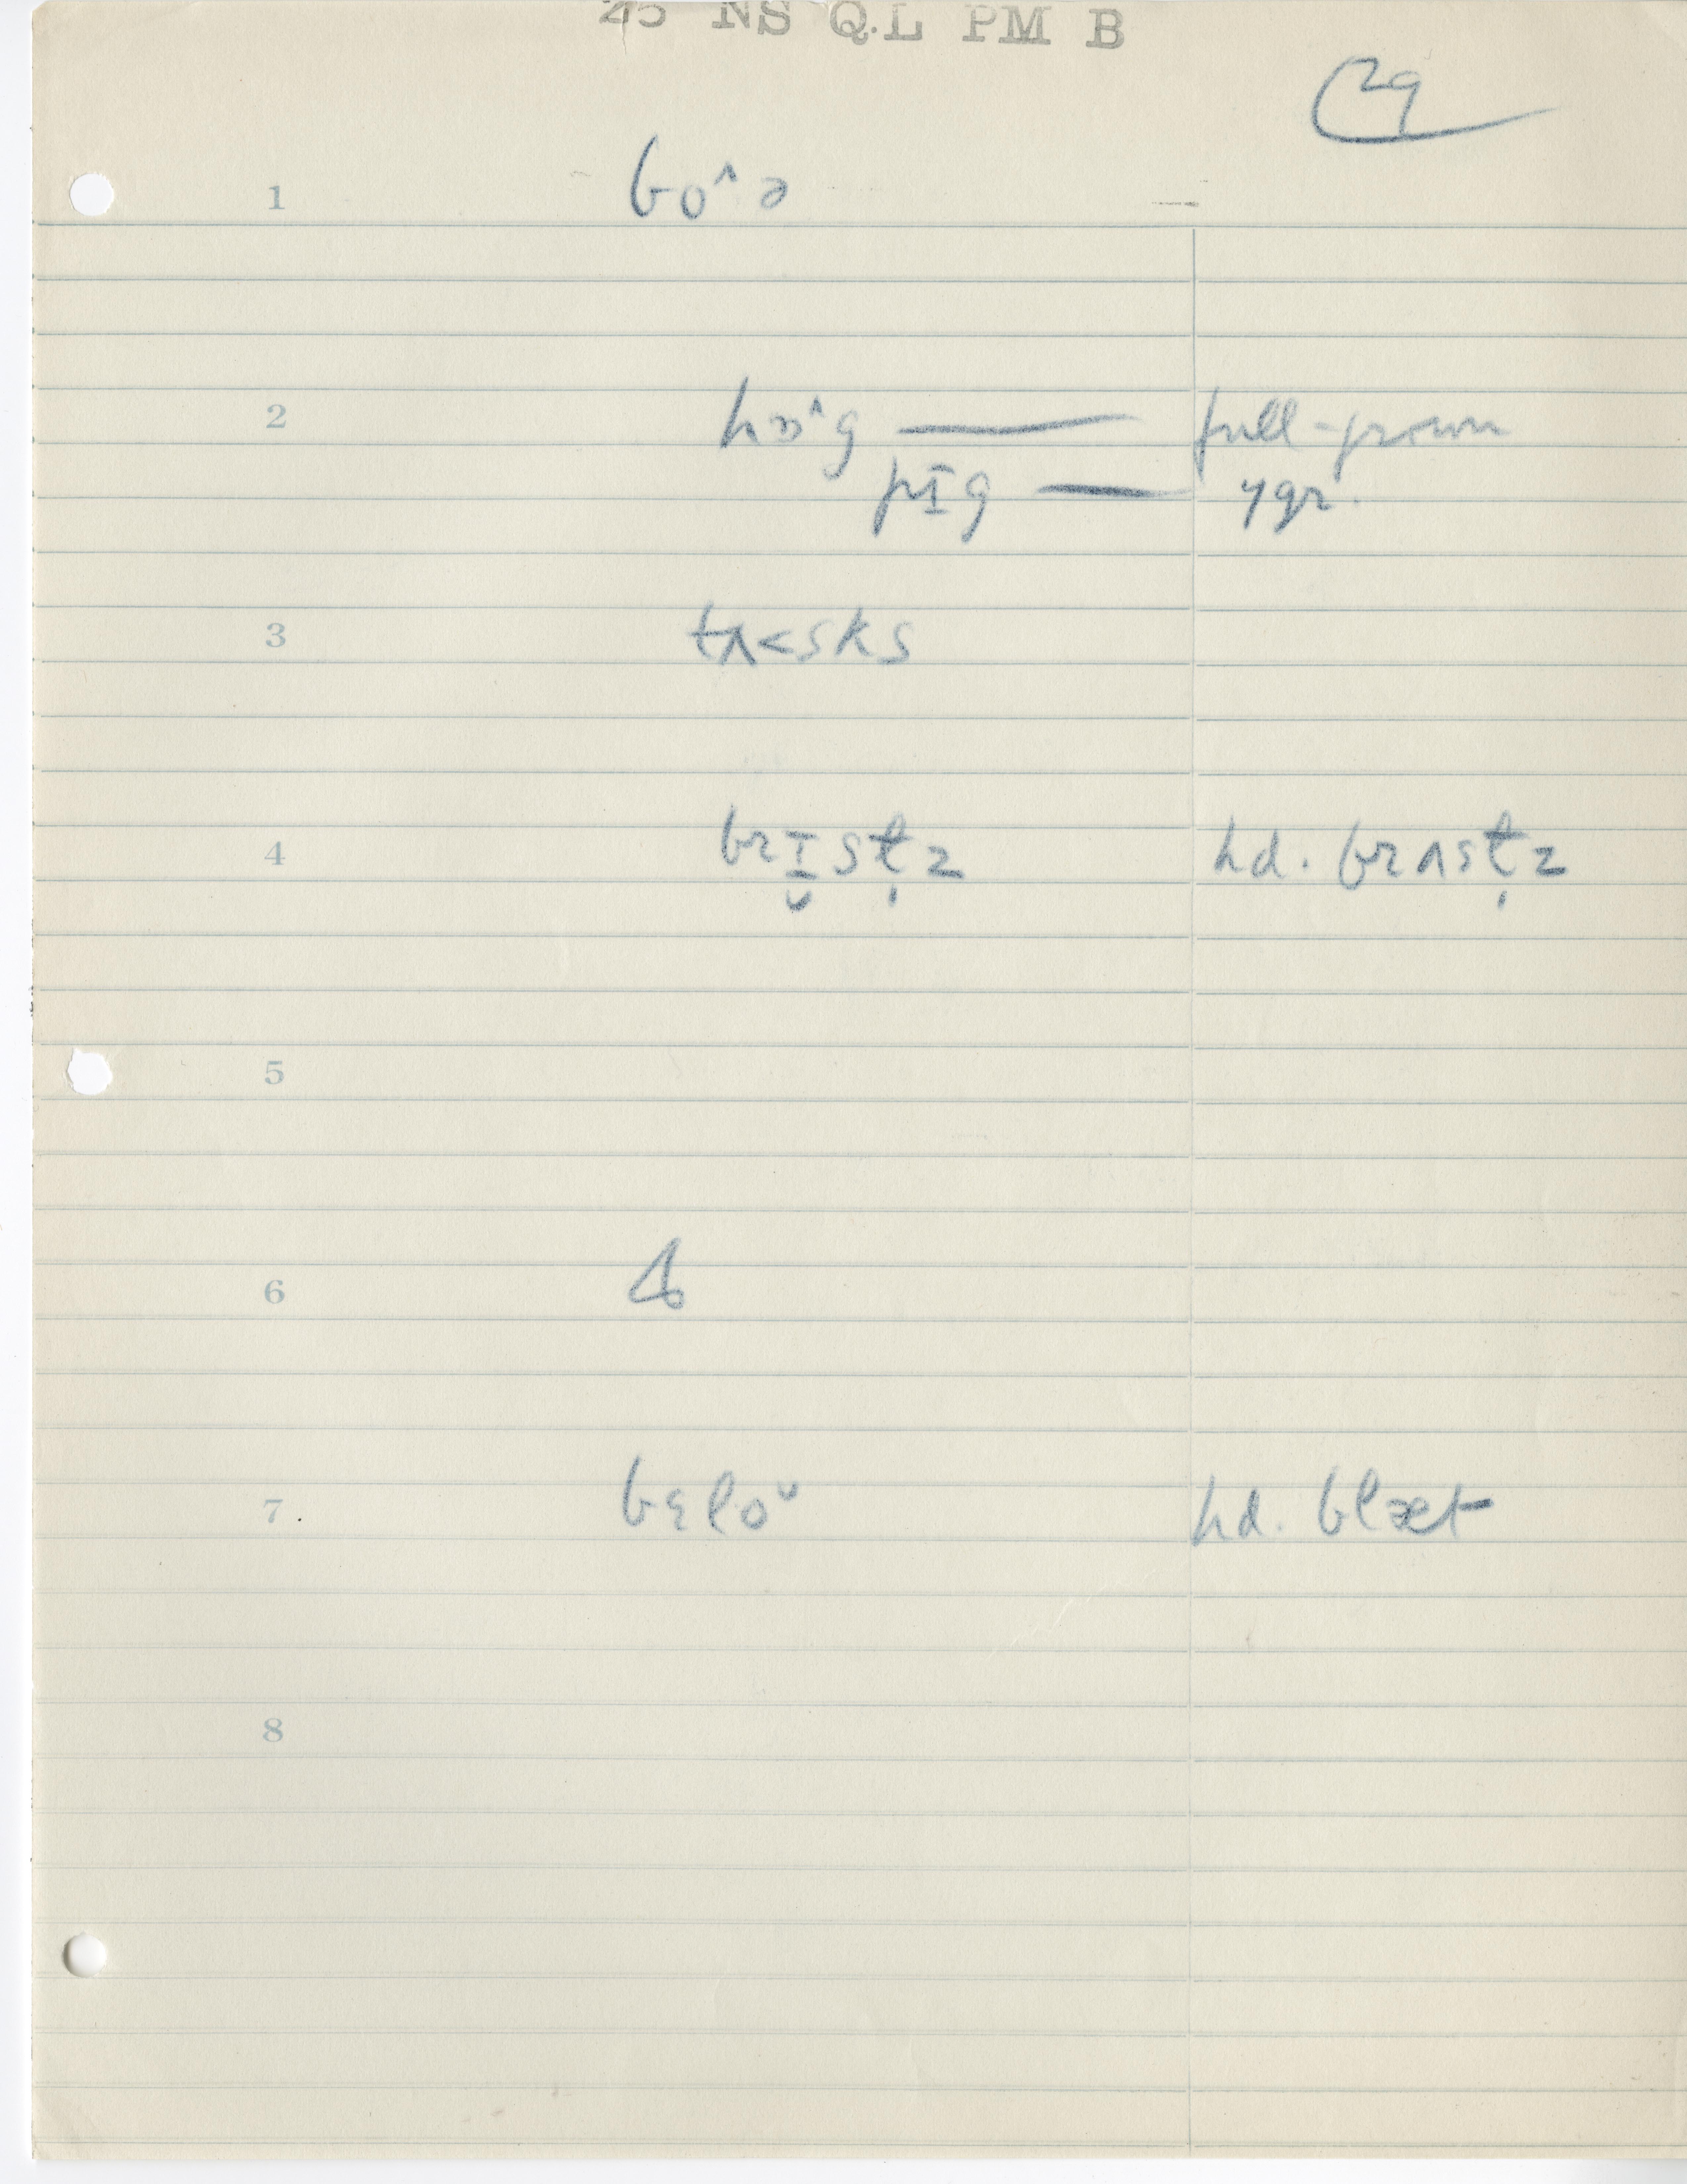 45 NS Q.L PM B
29
1 bo^ə
2 hɒ^g — full-grown
pɪg — ygr.
3 tʌ<sks
4 brɪ̬stl̩z hd. brʌstl̩z
5
6
7 bɛlo˅ hd. blæt
8